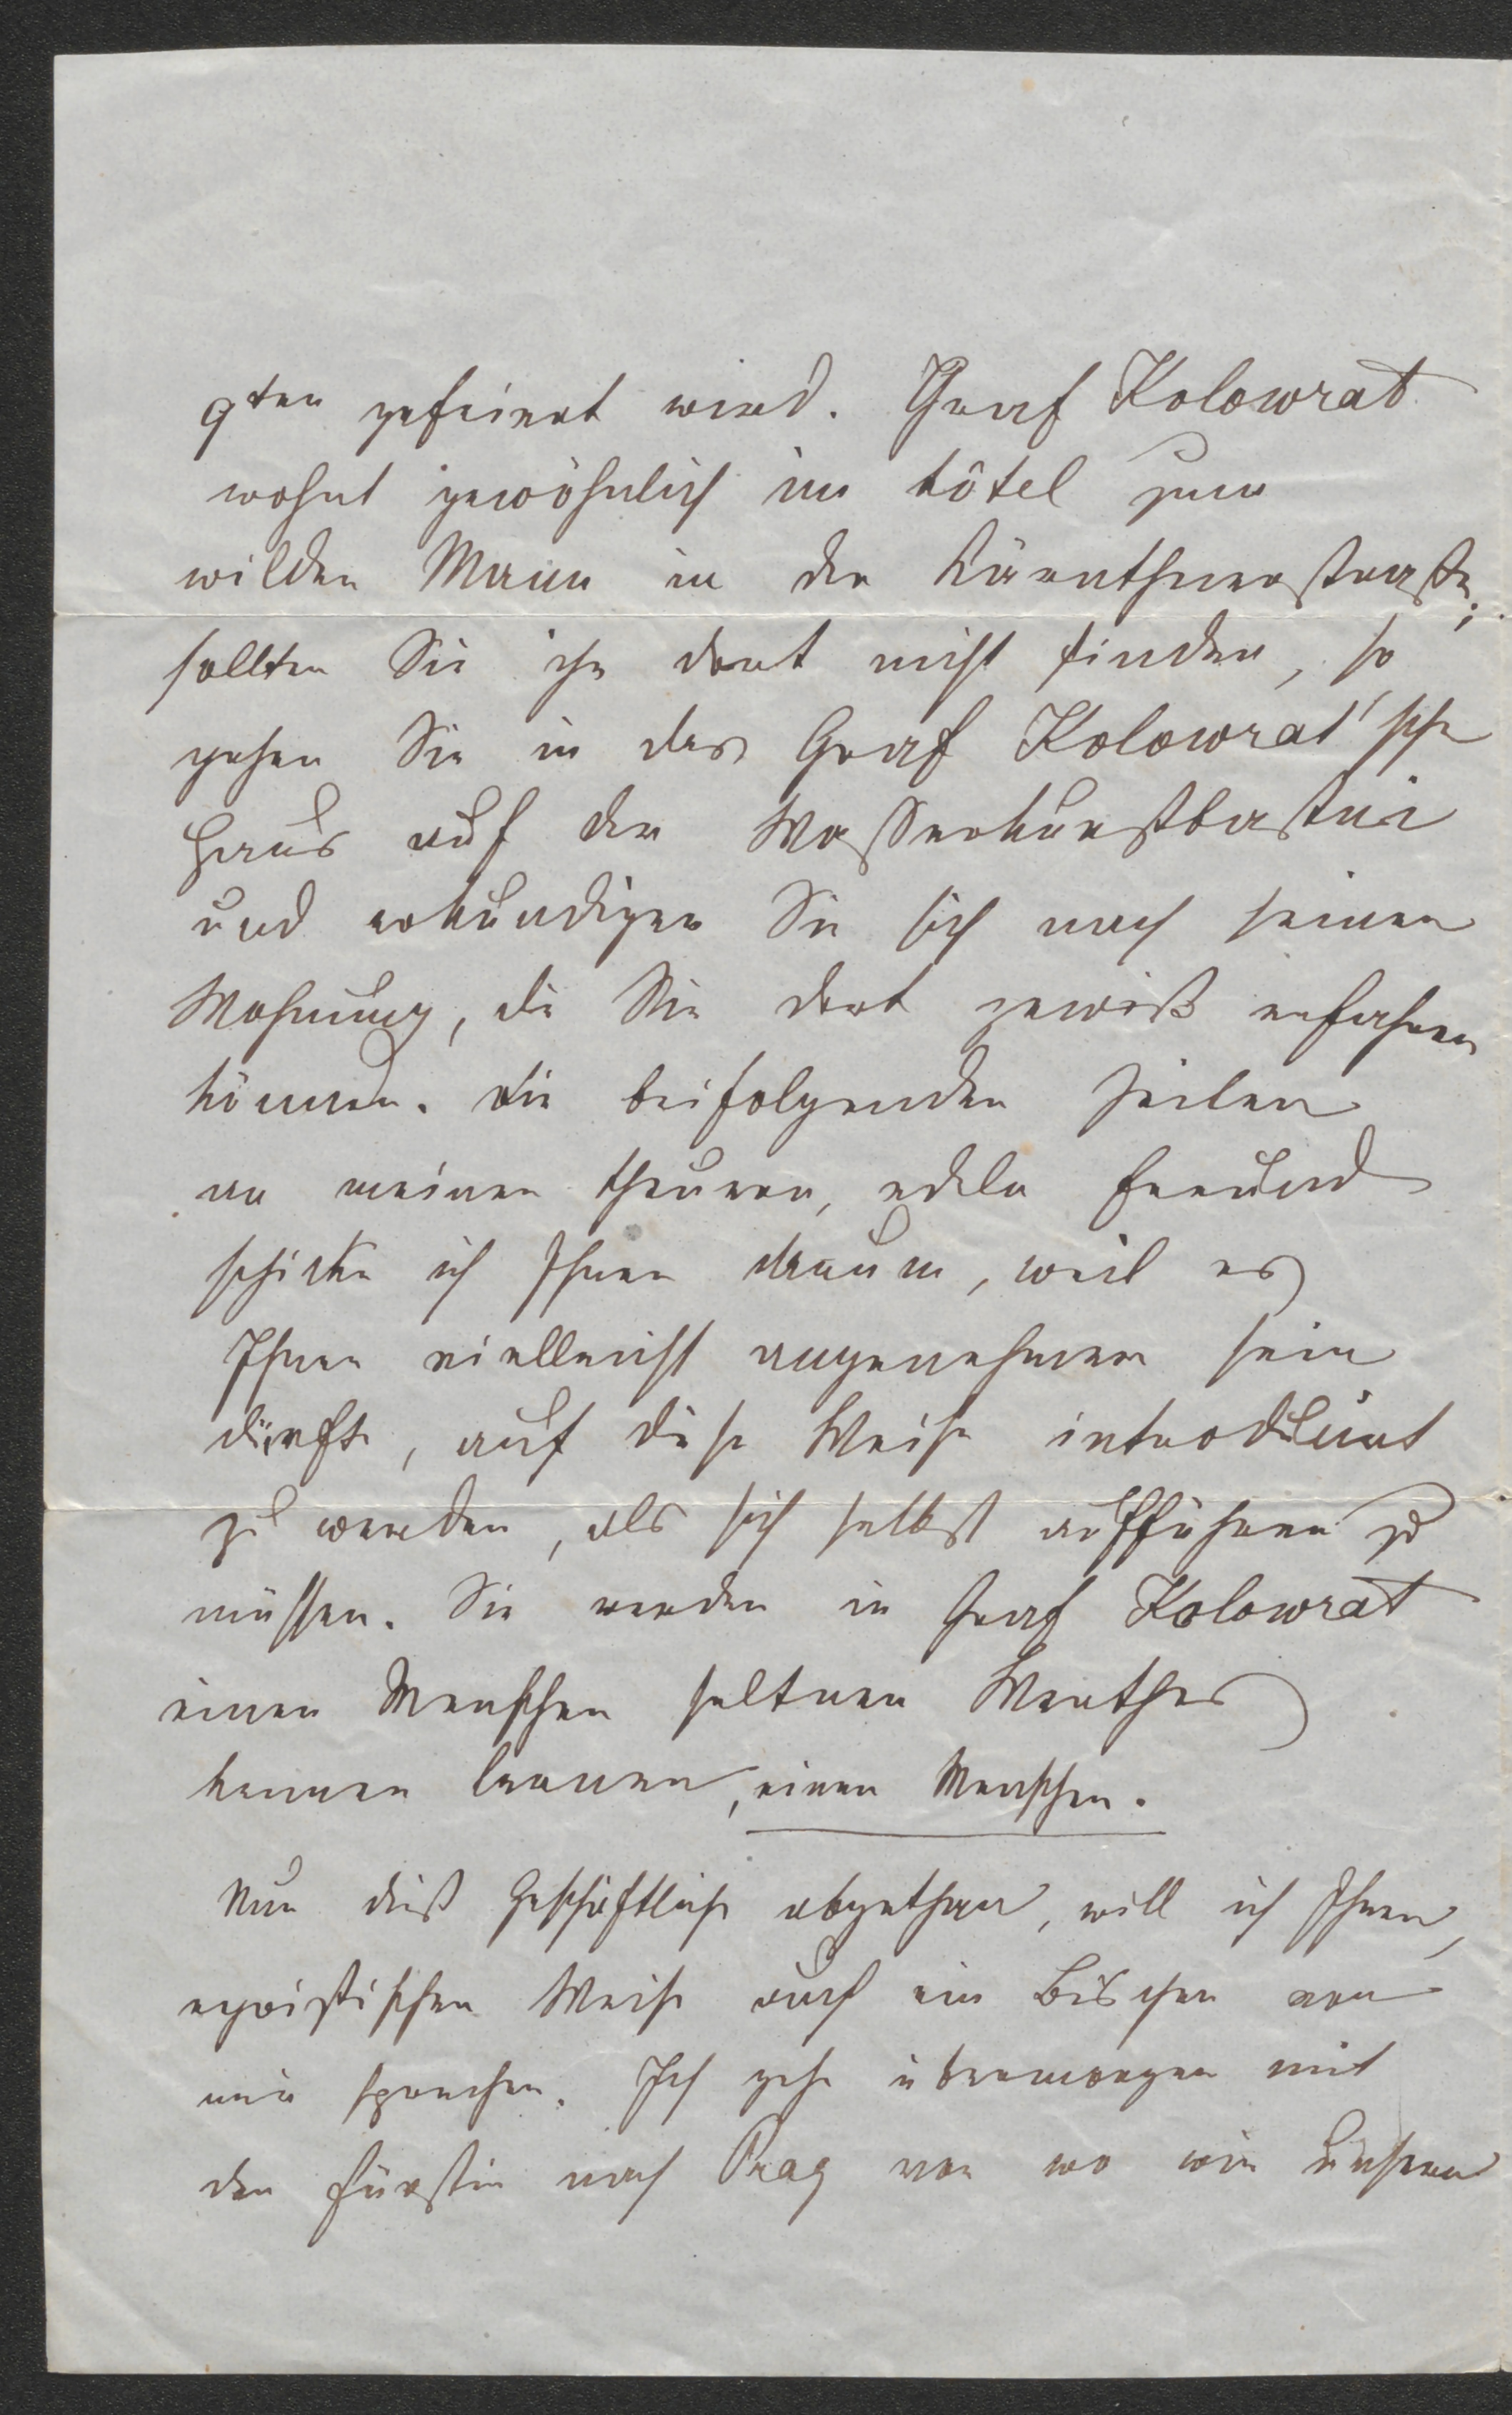 9ten gefeiert wird. Graf Kolowrat
wohnt gewöhnlich im hôtel zum
wilden Mann in der Kärnthnerstraße;
sollten Sie ihn dort nicht finden, so
gehen Sie in das Graf Kolowrat'sche
Haus auf der Wasserkunstbastei
und erkundigen Sie sich nach seiner
Wohnung, die Sie dort gewiß erfahren
können. Die beifolgenden Zeilen
an meinen theuren, edeln Freund
schicke ich Ihnen darum, weil es
Ihnen vielleicht angenehmer sein
dürfte, auf diese Weise introduciert
zu werden, als sich selbst aufführen zu
müssen. Sie werden in Graf Kolowrat
einen Menschen seltnen Werthes
kennen lernen, einen Menschen.
Nun dieß Geschäftliche abgethan, will ich Ihnen,
egoistischer Weise auch ein Bischen von
mir sprechen. Ich gehe übermorgen mit
der Fürstin nach Prag von wo wir